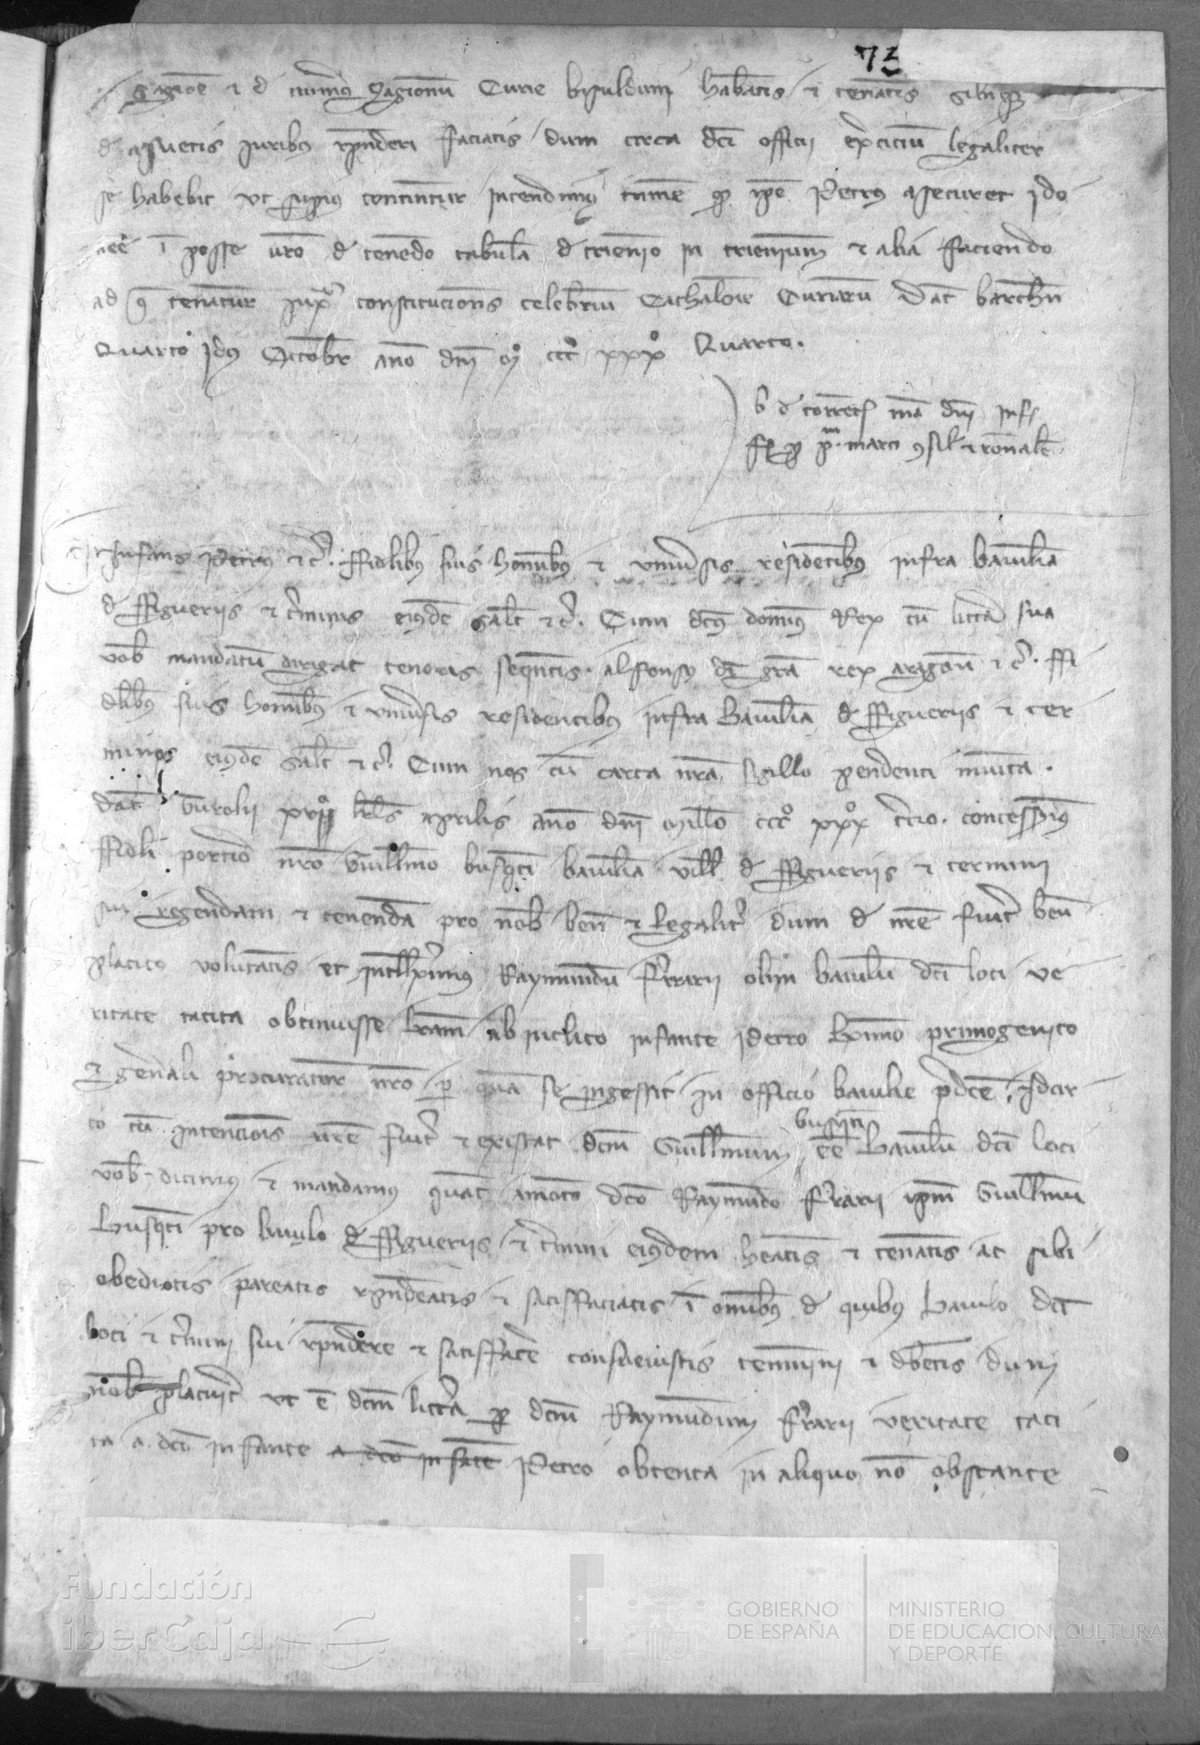 73
Sagione et de numero Sagionum Curie bisulduni habeatis et teneatis sibiqz
de assuetis iuribus responderi faciatis dum circa dci officii exerciciu legaliter
se habebit ut supius continetur Intendimus tamen qd ipe Petrus assecuret ido
nee i posse vro de tenedo tabula de trienio in trienium et alia faciendo
ad q tenetur iuxa constitucions celebriu Cathalonie Curiaru Dat barchn
Quarto idus Octobr ano dni mo ccco xxxo Quarto.
fuit p
Infans Petrus etc. ffidelibus suis hominibus et universis residentibus infra baiulia
de ffigueriis et terminis eiusde saltm etc. Cum dcus dominus Rex cu littera sua
vob mandatu dirigat tenoris sequentis. alfonsus di gra rex aragonu etc. ffi
delibus suis hominibus et universis residentibus infra baiulia de ffigueriis et ter
minos eiusde saltm etc. Cum nos cu carta nra sigillo pendenti munita.
dat kls aprilis ano dni millo ccco xxxo tercio. concessimus
ffideli porterio nro Guillmo busqueti baiulia ville de ffigueriis et termini
sui regendam et tenenda pro nob ben et legaliter dum de nre fuerit bene
placito voluntatis et intelleximus Raymundu fferrarii olim baiulu dci loci ve
ritate tacita obtinuisse lram ab inclito infante Petro kmo primogenito
et generali procuratore nro p qua se ingessit in officio baiulie pdce. Idcir
co cu intencionis nre fuerit et existat dcm Guillmum busqueti ee baiulu dci loci
vob dicimus et mandamus quat amoto dco Raymundo fferrarii ipm Guillmu
busqueti pro baiulo de ffigueriis et termini eiusdem heatis et teneatis ac sibi
obediatis pareatis respondeatis et satisfaciatis i omibus de quibus baiulo dci
loci et termini sui respondere et satisffacere consuevistis tenemini et debetis dum
nob placuerit ut e dcm littera p dcm Raymundum fferrarii veritate taci
ta a dco infante a dco infate Petro obtenta in aliquo no obstante
Fundación
iberCaja
GOBIERNO
DE ESPAÑA
MINISTERIO
DE EDUCACIÓN, CULTURA
Y DEPORTE